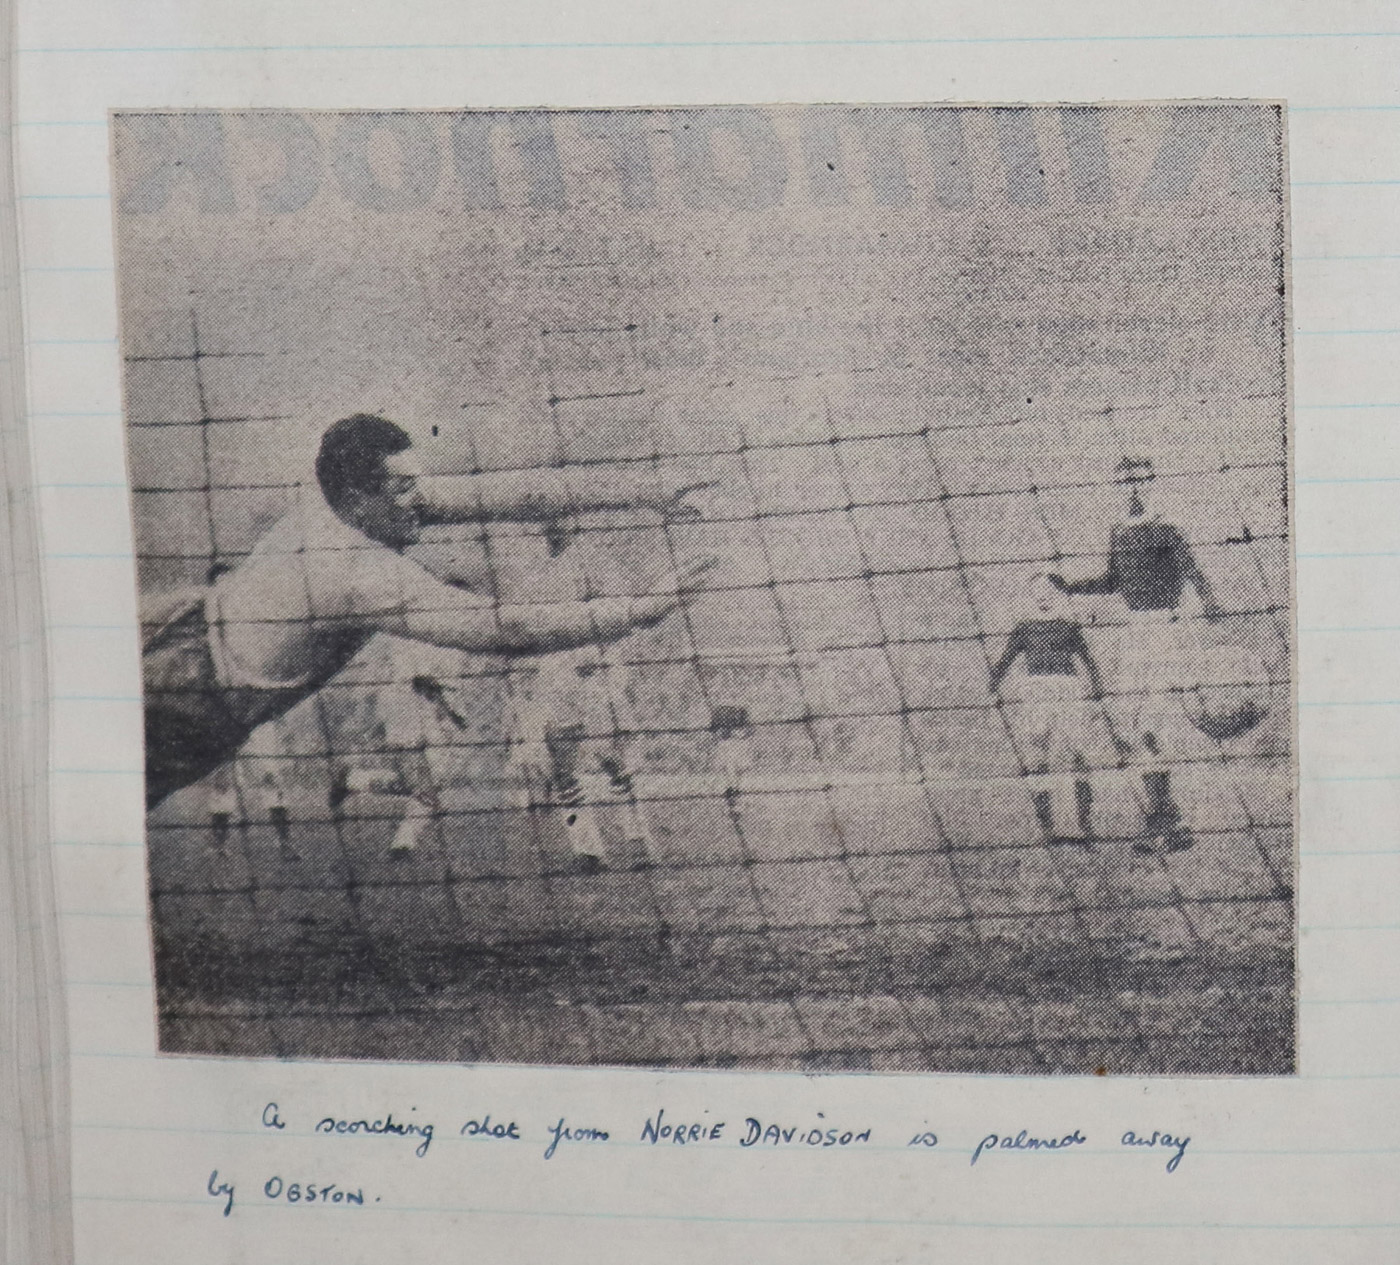 A scorching shot from NORRIE DAVIDSON is palmed away
by OGSTON.